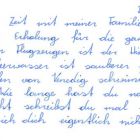 Zeit mit meiner Familie
Erholung für die ga
Flugzeugen ist der Hi
erwasser ist sauberer
en von Venedig schwimm
Wie lange hast du no
ht schreibst du mal
ich dich eigentlich nich